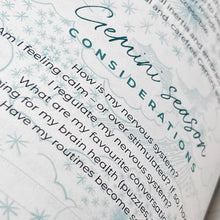 Gemini season
CONSIDERATIONS
How is my nervous system?
Am I feeling calm – or over stimulated? If so,
I regulate my nervous system?
What are my favourite conversation
ing for my brain health (puzzles
Have my routines become s